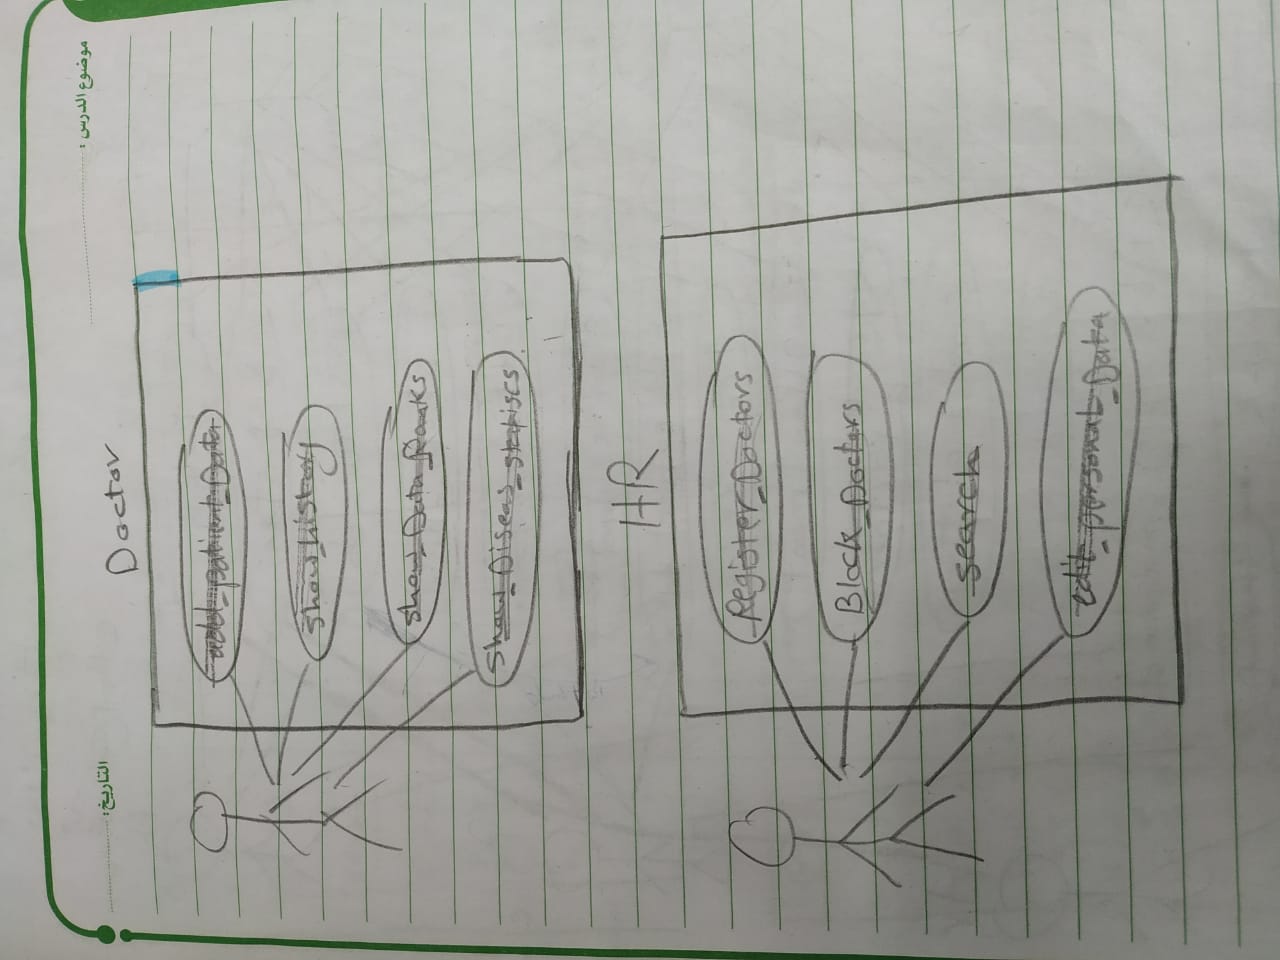 موضوع الدرس :
التاريخ:
Doctor
add_patient_Data
show_History
show_Data_Peaks
show_Diseas_statiscs
HR
Register_Doctors
Block_Doctors
search
edit_personal_Data